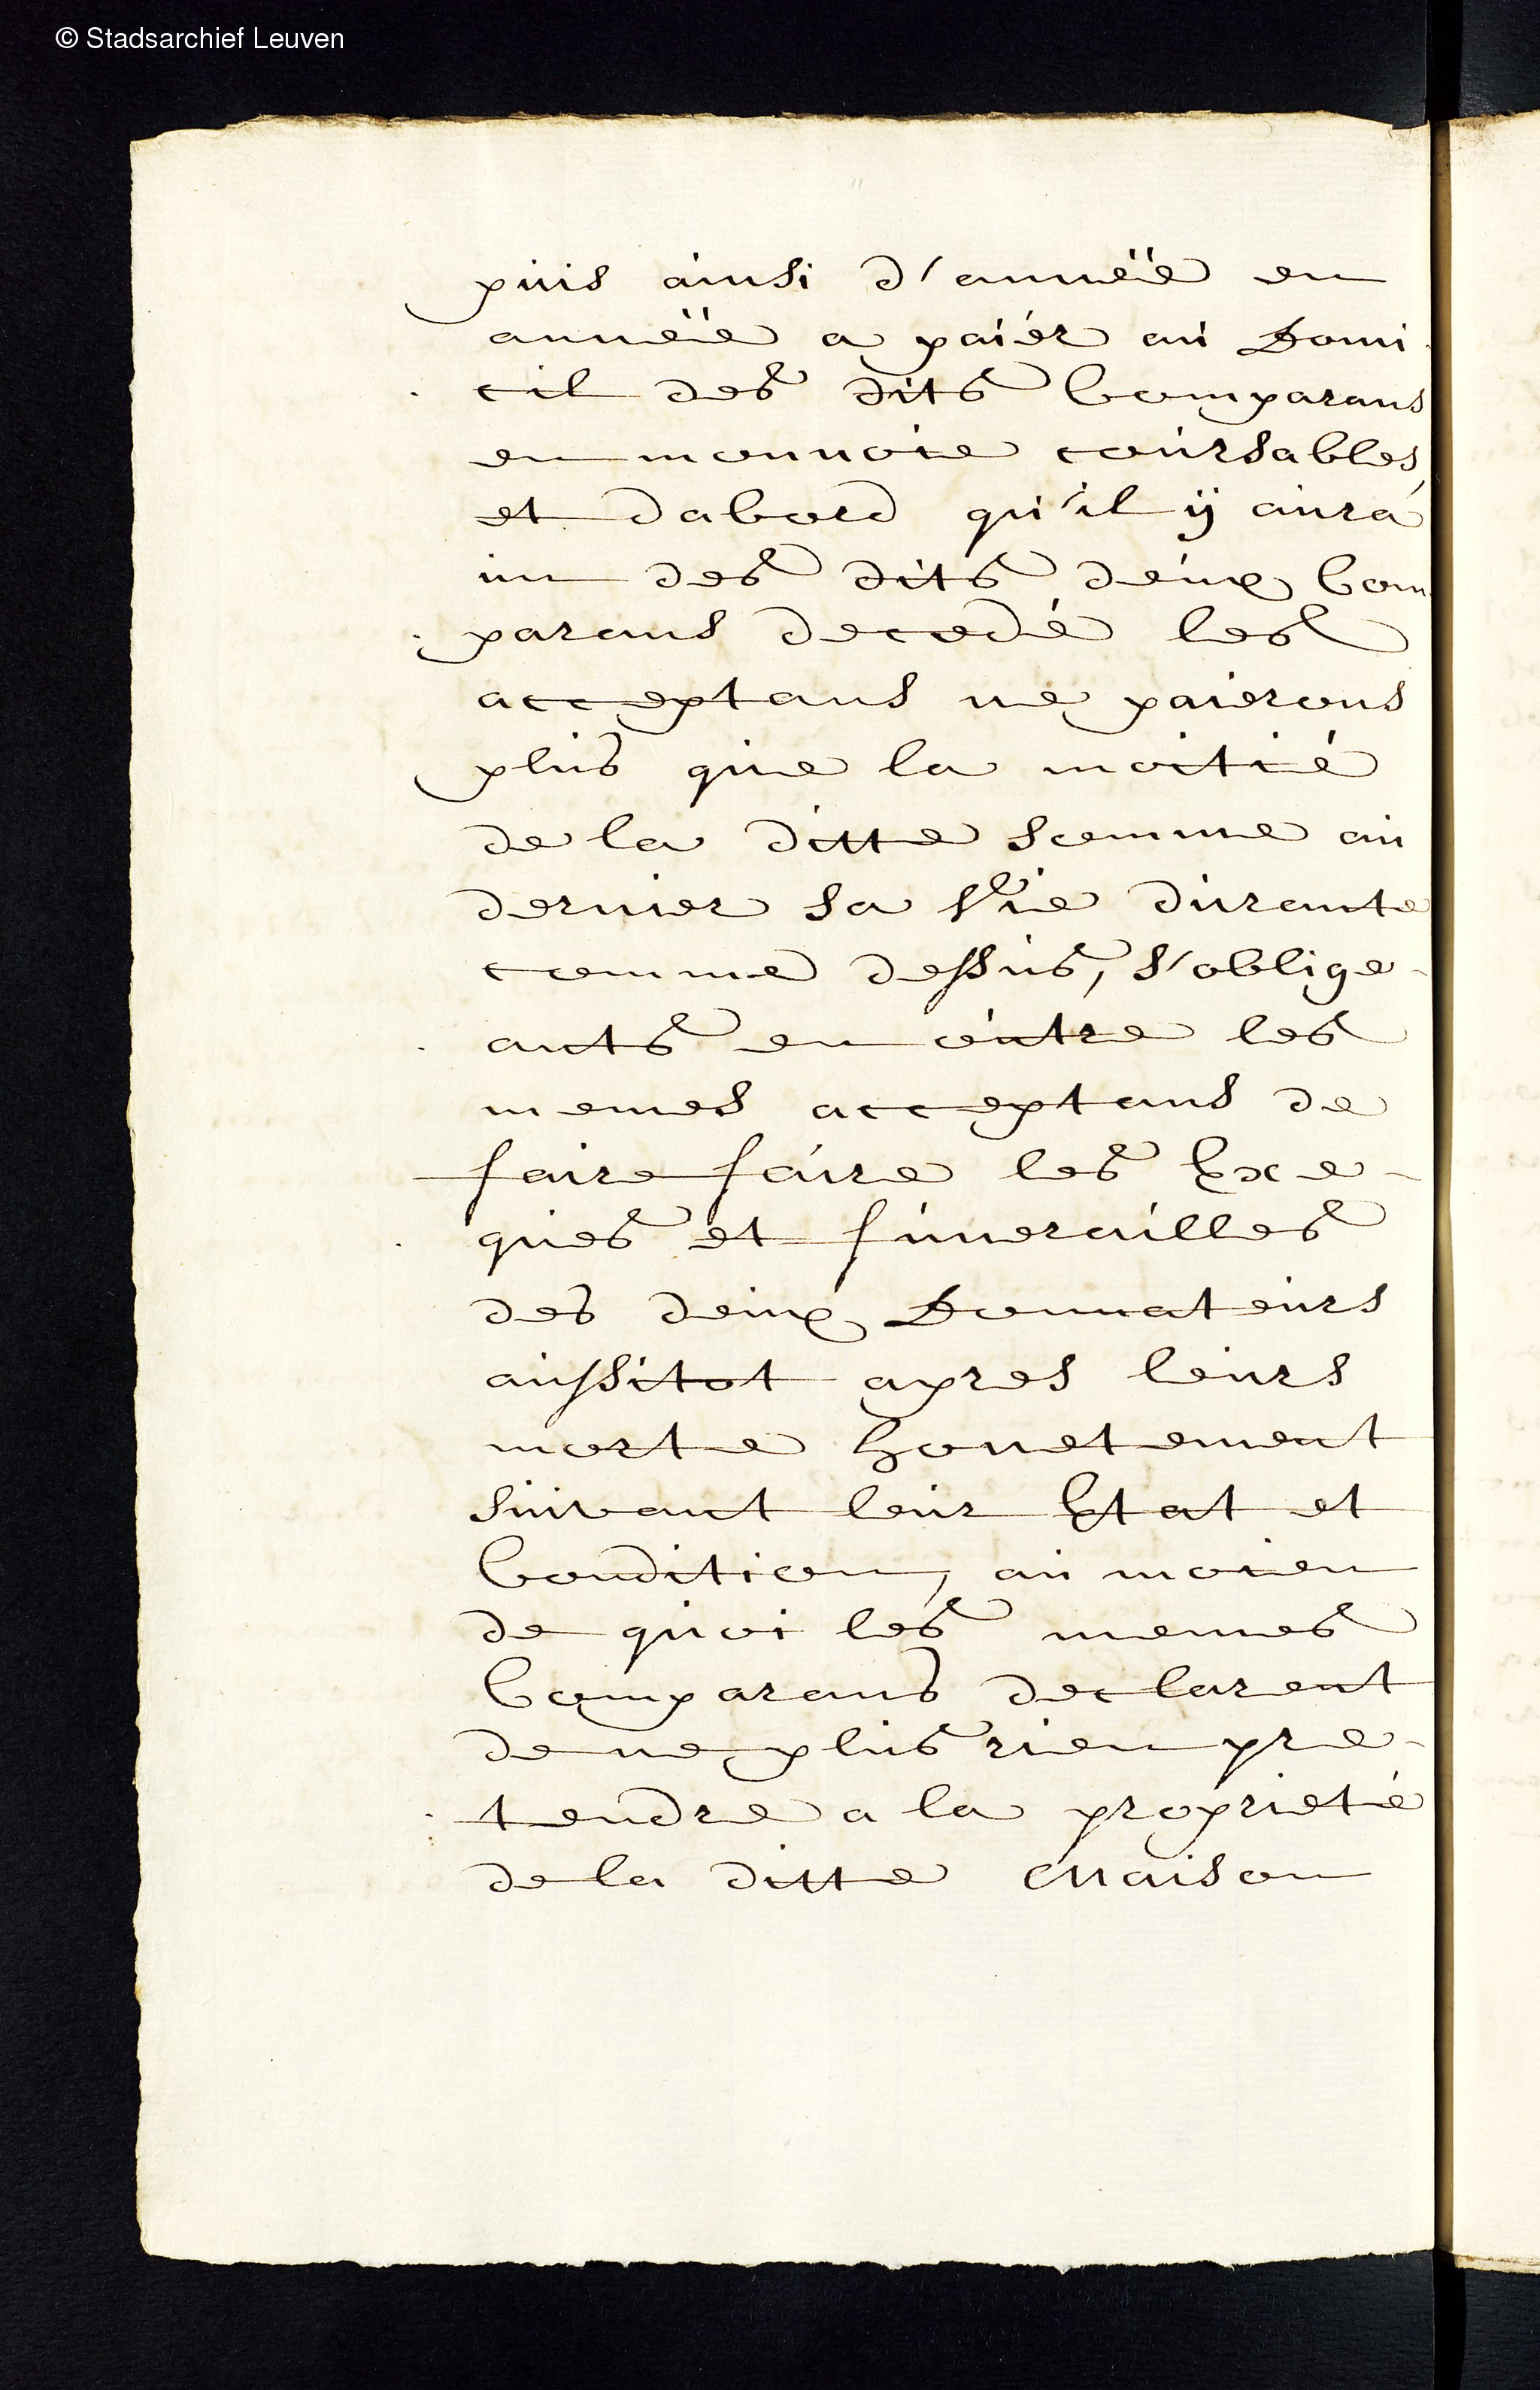 © Stadsarchief Leuven
puis ainsi d'année en
année a paiér au Domi-
cil des dits Comparans
en monnoie coursables,
et dabord qu'il ÿ aura
un des dits deux Com
parans decedé les
acceptans ne paierons
plus que la moitié
de la ditte somme au
dernier sa Vie durante
comme dessus, s'oblige-
ants en outre les
memes acceptans de
faire faire les Exe-
ques et funerailles
des deux Donnateurs
aussitot apres leurs
morte honetement
suivant leur Etat et
Condition, au moien
de quoi les memes
Comparans declarent
de ne plus rien pre-
tendre a la proprieté
de la ditte Maison